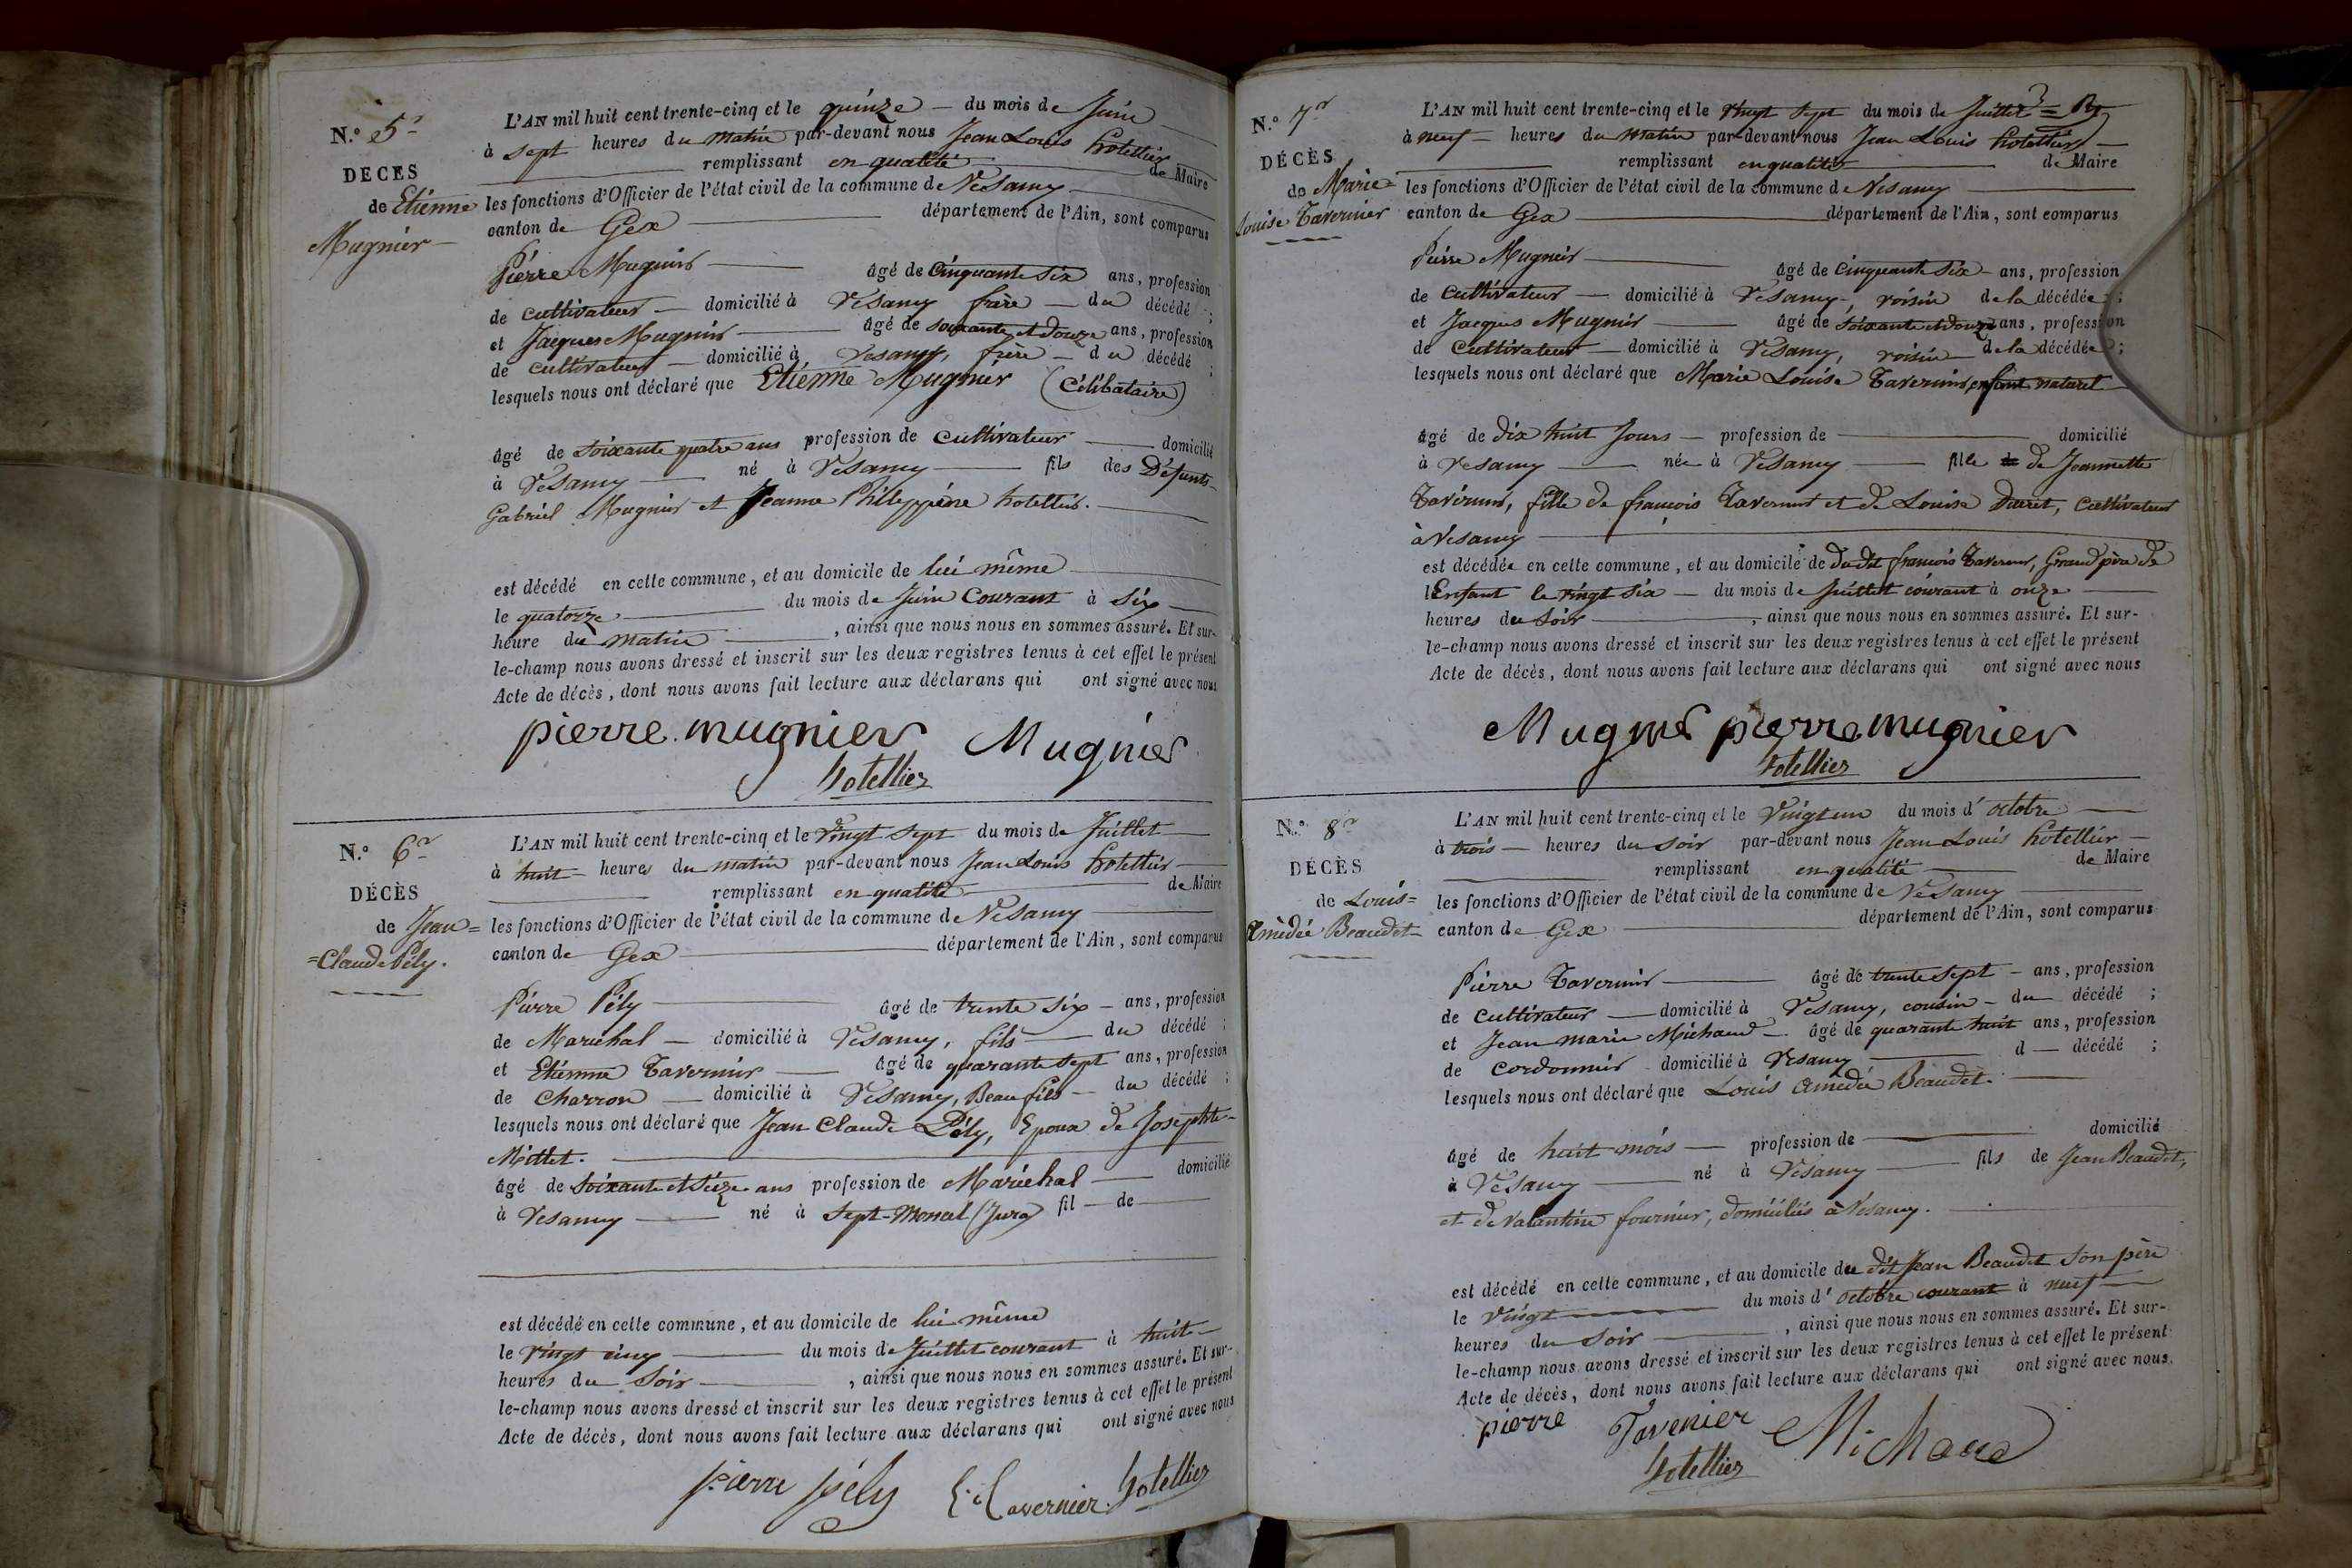 N.º 5.e
DÉCÈS
de Etienne
Mugnier
L'AN mil huit cent trente-cinq et le quinze du mois de Juin
à sept heures du matin par-devant nous Jean Louis hotellier
remplissant en qualité de Maire
les fonctions d'Officier de l'état civil de la commune de Vesancy
canton de Gex département de l'Ain, sont comparus
Pierre Mugnier âgé de cinquante six ans, profession
de cultivateur domicilié à Vesancy frère du décédé ;
et Jacques Mugnier âgé de soixante et douze ans, profession
de cultivateur domicilié à Vesancy, frère du décédé ;
lesquels nous ont déclaré que Etienne Mugnier (Célibataire)
âgé de soixante quatre ans profession de cultivateur domicilié
à Vesancy né à Vesancy fils des Défunts
Gabriel Mugnier et Jeanne Philippine hotellier.
est décédé en cette commune, et au domicile de lui même
le quatorze du mois de Juin courant à six
heure du matin , ainsi que nous nous en sommes assuré. Et sur-
le-champ nous avons dressé et inscrit sur les deux registres tenus à cet effet le présent
Acte de décès, dont nous avons fait lecture aux déclarans qui ont signé avec nous
pierre mugnier Mugnier
hotellier
N.º 6.e
DÉCÈS
de Jean=
=Claude Pély.
L'AN mil huit cent trente-cinq et le vingt sept du mois de Juillet
à huit heures du matin par-devant nous Jean Louis hotellier
remplissant en qualité de Maire
les fonctions d'Officier de l'état civil de la commune de Vesancy
canton de Gex département de l'Ain, sont comparus
Pierre Pély âgé de trente six ans, profession
de Maréchal domicilié à Vesancy, fils du décédé ;
et Etienne Tavernier âgé de quarante sept ans, profession
de charron domicilié à Vesancy, Beau fils du décédé ;
lesquels nous ont déclaré que Jean Claude Pély, Epoux de Josephte
Millet.
âgé de soixante et seize ans profession de Maréchal domicilié
à Vesancy né à Sept-Moncel (Jura) fil de
est décédé en cette commune, et au domicile de lui même
le vingt cinq du mois de Juillet courant à huit
heures du soir , ainsi que nous nous en sommes assuré. Et sur-
le-champ nous avons dressé et inscrit sur les deux registres tenus à cet effet le présent
Acte de décès, dont nous avons fait lecture aux déclarans qui ont signé avec nous
pierre pély E. Tavernier hotellier
N.º 7.e
DÉCÈS
de Marie=
Louise Tavernier
L'AN mil huit cent trente-cinq et le vingt sept du mois de Juillet
à neuf heures du matin par-devant nous Jean Louis hotellier
remplissant en qualité de Maire
les fonctions d'Officier de l'état civil de la commune de Vesancy
canton de Gex département de l'Ain, sont comparus
Pierre Mugnier âgé de cinquante six ans, profession
de cultivateur domicilié à Vesancy, voisin de la décédée ;
et Jacques Mugnier âgé de soixante et douze ans, profession
de cultivateur domicilié à Vesancy, voisin de la décédée ;
lesquels nous ont déclaré que Marie Louise Tavernier, enfant naturel
âgé de dix huit Jours profession de domicilié
à Vesancy née à Vesancy fille de Jeannette
Tavernier, fille de françois Tavernier et de Louise Duret, cultivateur
à Vesancy
est décédée en cette commune, et au domicile de du dit françois Tavernier, Grand père de
l'Enfant le vingt six du mois de Juillet courant à onze
heures du soir , ainsi que nous nous en sommes assuré. Et sur-
le-champ nous avons dressé et inscrit sur les deux registres tenus à cet effet le présent
Acte de décès, dont nous avons fait lecture aux déclarans qui ont signé avec nous
Mugnier pierre mugnier
hotellier
N.º 8.e
DÉCÈS
de Louis=
Amédée Beaudet
L'AN mil huit cent trente-cinq et le vingt un du mois d'octobre
à trois heures du soir par-devant nous Jean Louis hotellier
remplissant en qualité de Maire
les fonctions d'Officier de l'état civil de la commune de Vesancy
canton de Gex département de l'Ain, sont comparus
Pierre Tavernier âgé de trente sept ans, profession
de cultivateur domicilié à Vesancy, cousin du décédé ;
et Jean marie Michaud âgé de quarante huit ans, profession
de cordonnier domicilié à Vesancy d décédé ;
lesquels nous ont déclaré que Louis Amédée Beaudet.
âgé de huit mois profession de domicilié
à Vesancy né à Vesancy fils de Jean Beaudet,
et de Valantine fournier, domiciliés à Vesancy.
est décédé en cette commune, et au domicile du dit Jean Beaudet son père
le vingt du mois d'octobre courant à neuf
heures du soir , ainsi que nous nous en sommes assuré. Et sur-
le-champ nous avons dressé et inscrit sur les deux registres tenus à cet effet le présent
Acte de décès, dont nous avons fait lecture aux déclarans qui ont signé avec nous.
pierre Tavenier Michaud
hotellier